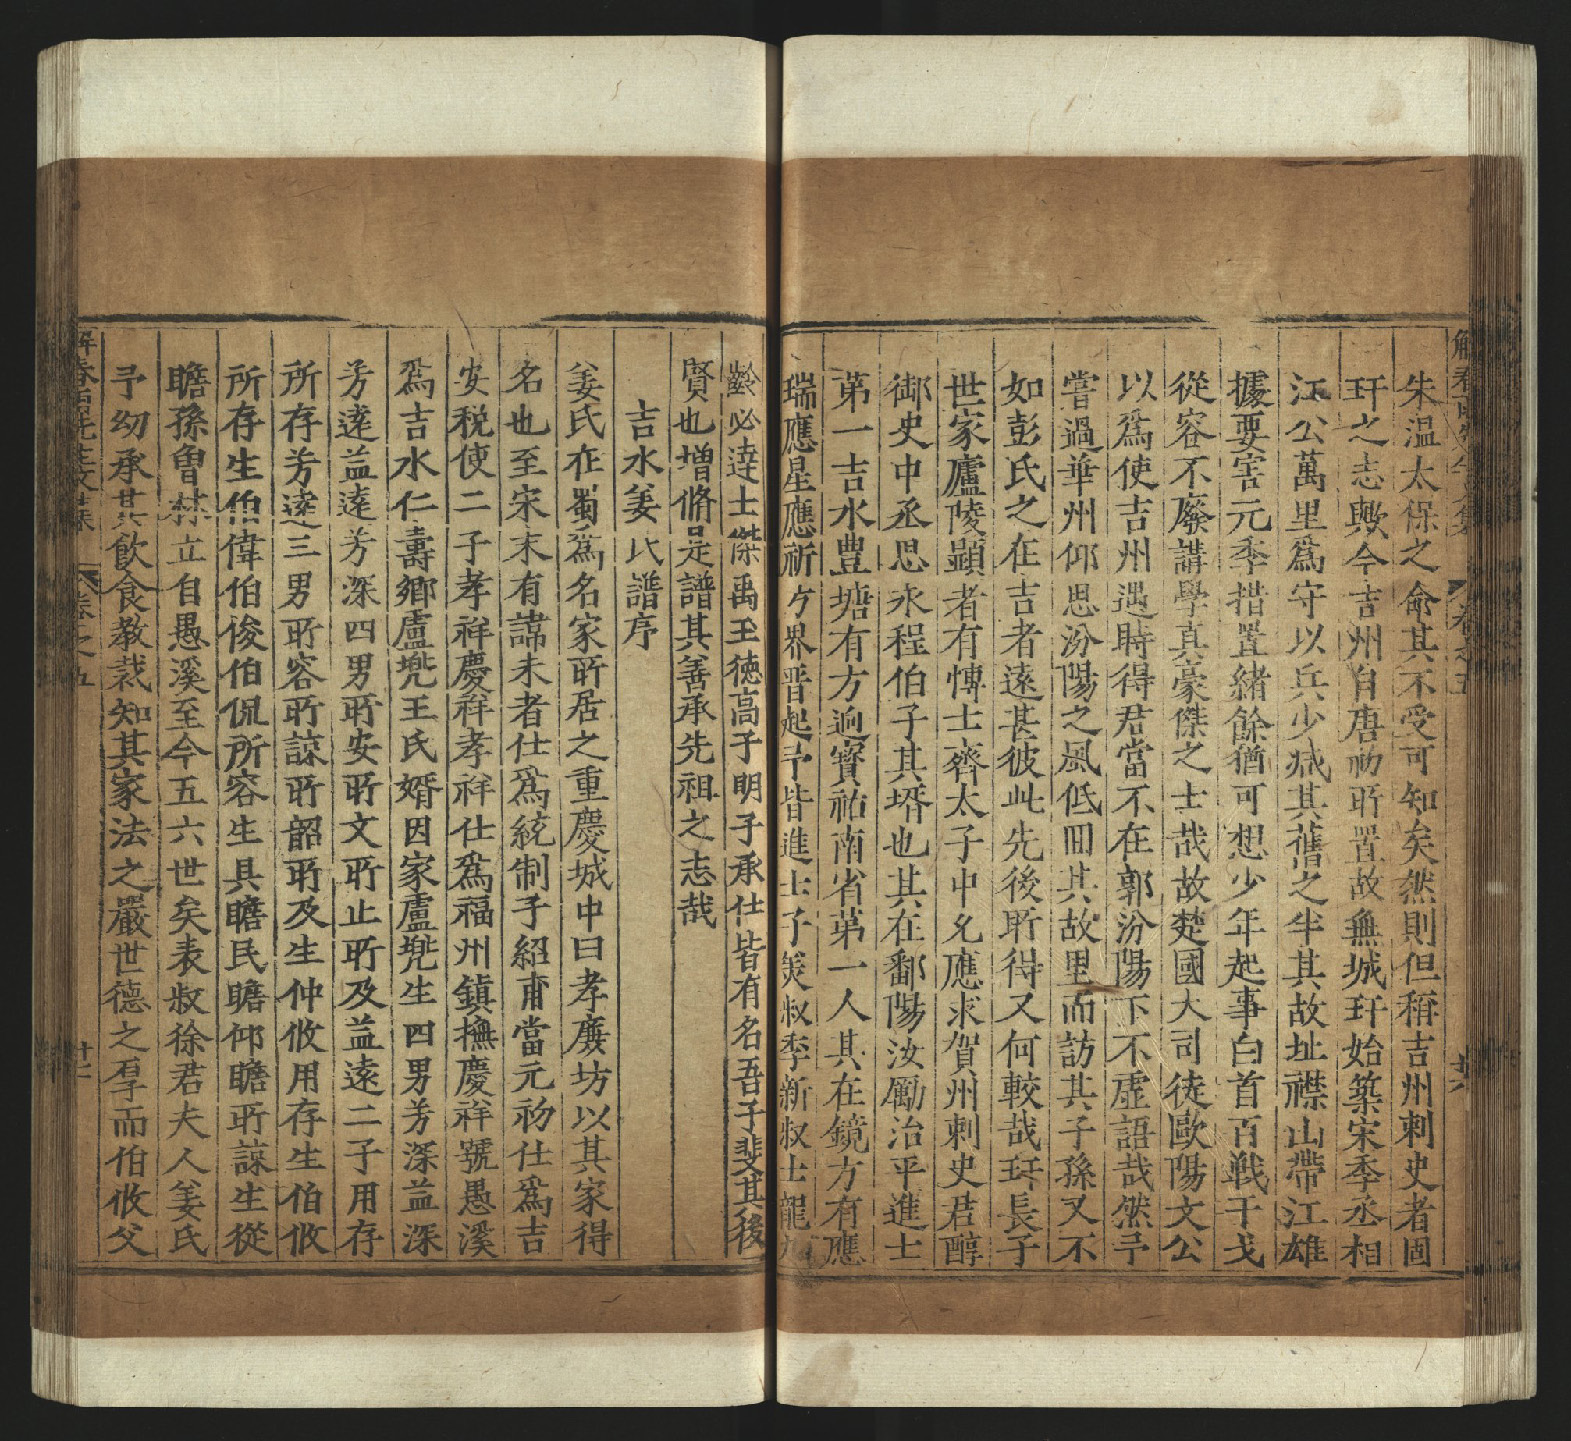 朱温太保之命其不受可知矣然則但稱吉州刺史者固
玕之志歟今吉州自唐初所置故無城玕始築宋季丞相
江公萬里爲守以兵少減其舊之半其故址襟山帶江雄
據要害元季措置緒餘猶可想少年起事白首百戦干戈
從容不廢講學真豪傑之士哉故楚國大司徒歐陽文公
以爲使吉州遇時得君當不在郭汾陽下不虛語哉然予
嘗過華州仰思汾陽之風低囬其故里而訪其子孫又不
如彭氏之在吉者遠甚彼此先後所得又何較哉玕長子
世家廬陵顯者有愽士齊太子中允應求賀州刺史君醇
御史中丞思永程伯子其壻也其在鄱陽汝勵治平進士
第一吉水豊塘有方迥寳祐南省第一人其在鏡方有應
瑞應星應祈方界晋起予皆進士子筴叔李新叔士龍九
齡必達士傑禹玉徳高子明子承仕皆有名吾子斐其後
賢也增脩是譜其善承先祖之志哉
吉水姜氏譜序
姜氏在蜀爲名家所居之重慶城中曰孝廉坊以其家得
名也至宋末有諱未者仕爲統制子紹甫當元初仕爲吉
安税使二子孝祥慶祥孝祥仕爲福州鎮撫慶祥號愚溪
爲吉水仁壽鄉盧兠王氏婿因家盧兠生四男芳深益深
芳遠益遠芳深四男所安所文所止所及益遠二子用存
所存芳遠三男所容所諒所韶所及生仲攸用存生伯攸
所存生伯偉伯俊伯侃所容生具瞻民瞻仰瞻所諒生從
瞻孫曾林立自愚溪至今五六世矣表叔徐君夫人姜氏
予幼承其飲食教裁知其家法之嚴世德之厚而伯攸父
卷之五